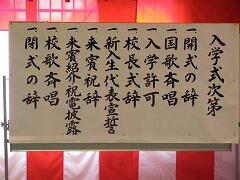 入学式次第
一開式の辞
一国歌斉唱
一入学許可
一校長式辞
一新入生代表宣誓
一来賓祝辞
一来賓紹介祝電披露
一校歌斉唱
一閉式の辞